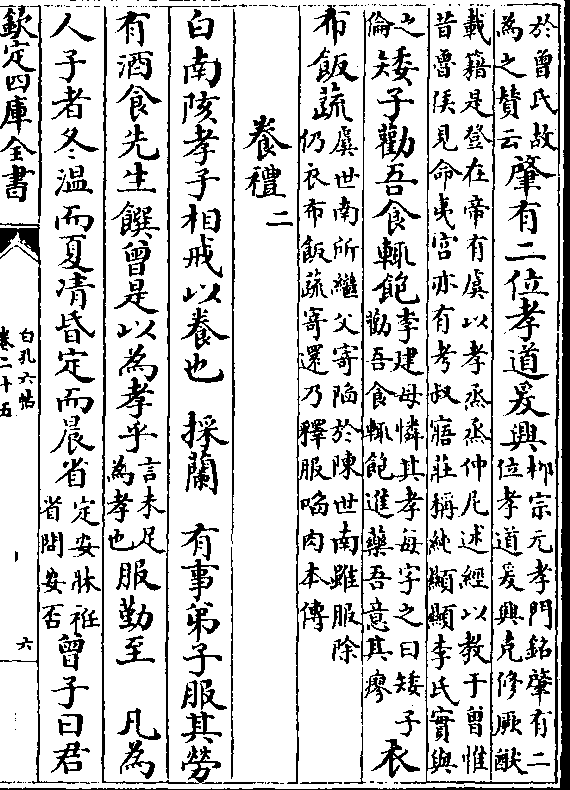 於曾氏故肇有二位孝道爰興柳宗元孝門銘肇有二
為之贊云位孝道爰興克修厥猷
載籍是登在帝有虞以孝烝烝仲尼述經以教于曾惟
昔魯侯見命夷宮亦有考叔寤莊稱純顯顯李氏實與
之倫矮子勸吾食輒飽李建母憐其孝每字之曰矮子
勸吾食輒飽進藥吾意其瘳衣
布飯蔬虞世南所繼父寄陷於陳世南雖服除
仍衣布飯蔬寄還乃釋服啗肉本傳
養禮二
白南陔孝子相戒以養也 採蘭 有事弟子服其勞
有酒食先生饌曾是以為孝乎言未足
為孝也服勤至 凡為
人子者冬溫而夏凊昏定而晨省定安牀袵
省問安否曾子曰君
欽定四庫全書
白孔六帖
卷二十五
六